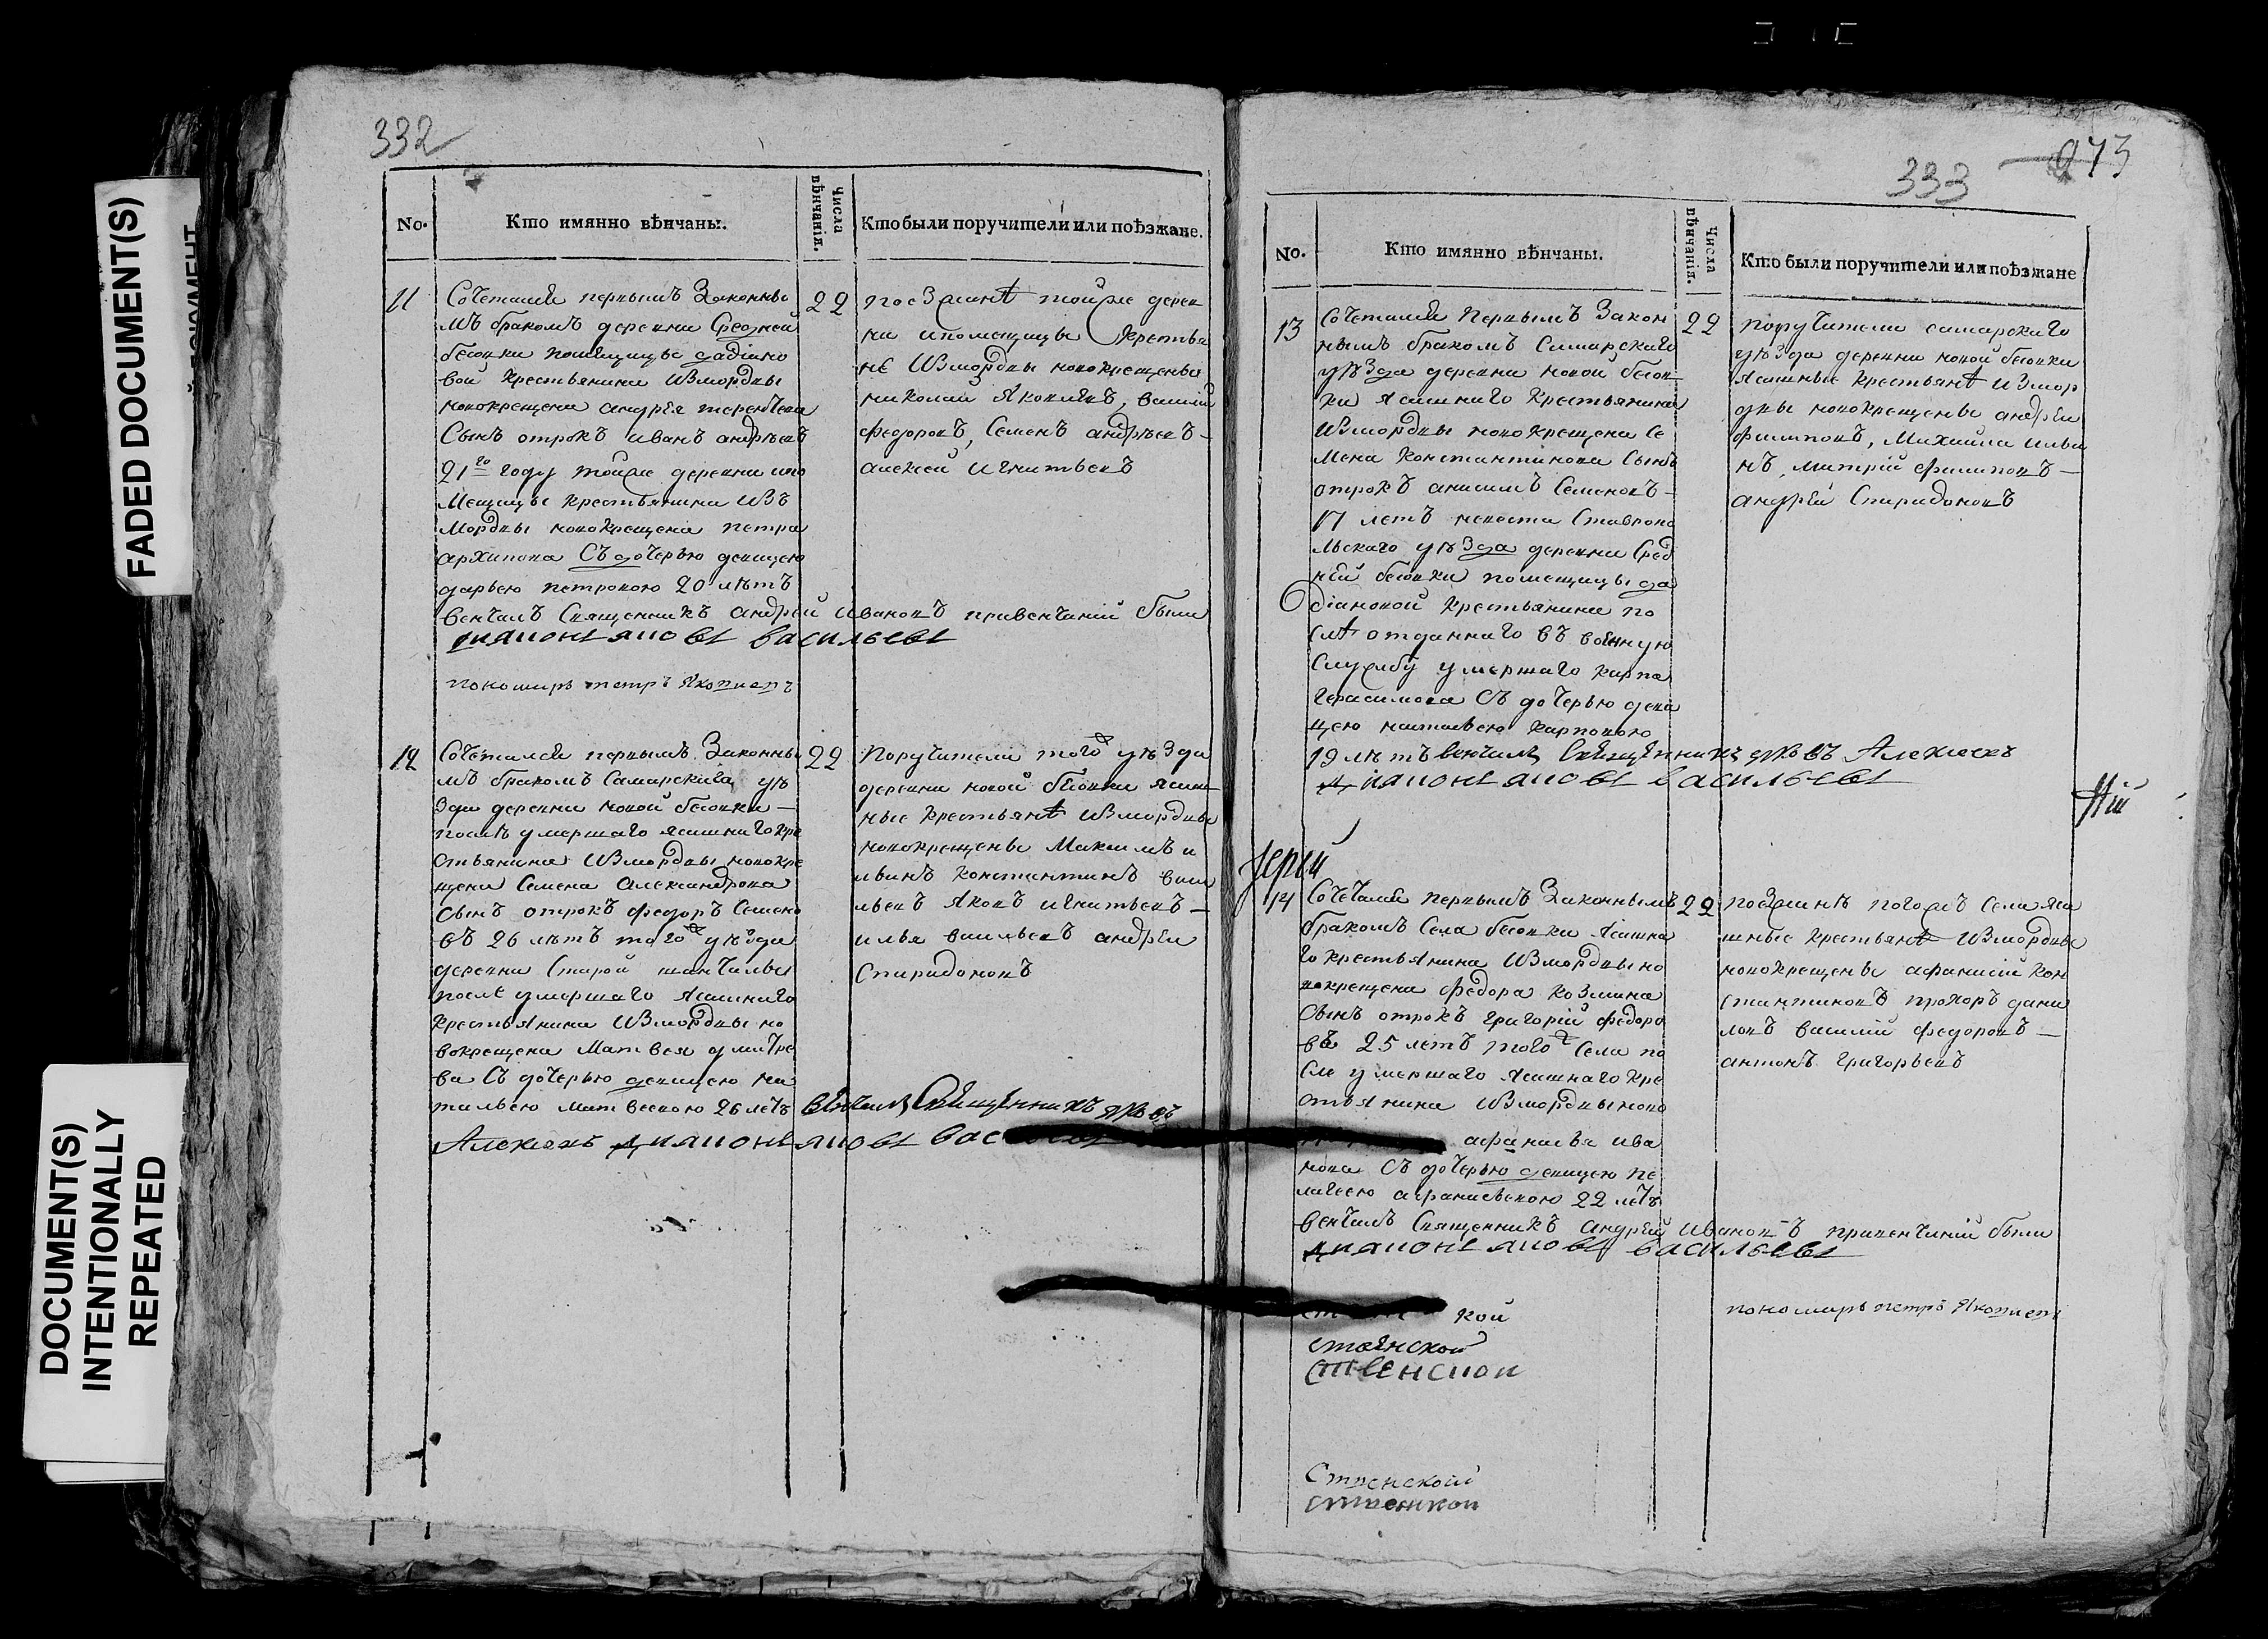 FADED DOCUMENT(S)
DOCUMENT(S)
INTENTIONALLY
REPEATED
332
No.
Кто имянно вѣнчаны.
Числа
вѣнчанія.
Кто были поручители или поѣзжане.
11
Сочетался первымъ Законны
мъ бракомъ деревни Средней
бесовки помещицы
вой крестьянина Измордвы
новокрещена андрея терентева
Сынъ отрокъ иванъ андрѣевъ
21 го году тойже деревни ипо
мещицы крестьянина Изъ
Мордвы новокрещена петра
архипова Съ дочерью девицею
дарьею петровою 20 лѣтъ
венчалъ Священникъ андрей Ивановъ привенчании были
диаконъ яковъ васильевъ
пономарь петръ Яковлевъ
22
поезжанѣ тойже дерев
ни ипомещицы Крестья
не Измордвы новокрещены
николай Яковлевъ, василий
федоровъ, Семенъ андрѣевъ
алексей игнатьевъ
12
Сочетался первымъ Законны
мъ бракомъ Самарскаго уѣ
зда деревни новой бесовки
послѣ умершаго ясашнаго кре
стьянина Измордвы новокре
щена Семена Александрова
Сынъ отрокъ федоръ Семено
въ 26 лѣтъ того ж уѣзда
деревни Старой
после умершаго Ясашнаго
крестьянина Измордвы но
вокрещена Матвея дмитре
ва Съ дочерью девицею на
тальею матвеевою 26 летъ венчалъ Священникъ
Алексеевъ диаконъ яковъ
22
Поручители того ж уѣзда
деревни новой бесовки ясаш
ные крестьянѣ Измордвы
новокрещены Максимъ и
львинъ константинъ васи
льевъ Яковъ игнатьевъ
илья васильевъ андрей
Спиридоновъ
333
973
No.
Кто имянно вѣнчаны.
Числа
вѣнчанія.
Кто были поручители или поѣзжане
13
Сочетался Первымъ Закон
нымъ бракомъ Самарскаго
уѣзда деревни новой бесов
ки ясашнаго крестьянина
Измордвы новокрещена Се
мена Константинова Сынъ
отрокъ анисимъ Семеновъ
17 летъ невеста Ставропо
льскаго уѣзда деревни Сред
ней бесовки помещицы
крестьянина по
слѣ отданнаго въ военную
Службу умершаго карпа
Герасимова Съ дочерью деви
цею натальею Карповою
19 лѣтъ венчалъ Священникъ Алексеевъ
диаконъ яковъ васильевъ
22
поручители самарскаго
уѣзда деревни новой бесовки
ясашные крестьянѣ измор
двы новокрещены андрей
филиповъ, Михайла ильи
нъ, митрий филиповъ
андрей Спиридоновъ
Іерей
14
Сочетался первымъ Законнымъ
бракомъ Села бесовки Ясашна
го крестьянина Измордвы но
вокрещена федора козмина
Сынъ отрокъ григорий федоро
въ 25 летъ того ж Села по
сле умершаго Ясашнаго кре
стьянина Измордвы ново
афанасья ива
нова Съ дочерью девицею пе
лагеею афанасьевою 22 летъ
венчалъ Священникъ андрей ивановъ привенчании были
диаконъ яковъ васильевъ
22
поезжанѣ тогожъ Села яса
шные крестьянѣ Измордвы
новокрещены афанасий кон
стантиновъ прохоръ дани
ловъ василий федоровъ
антонъ григорьевъ
пономарь петръ Яковлевъ